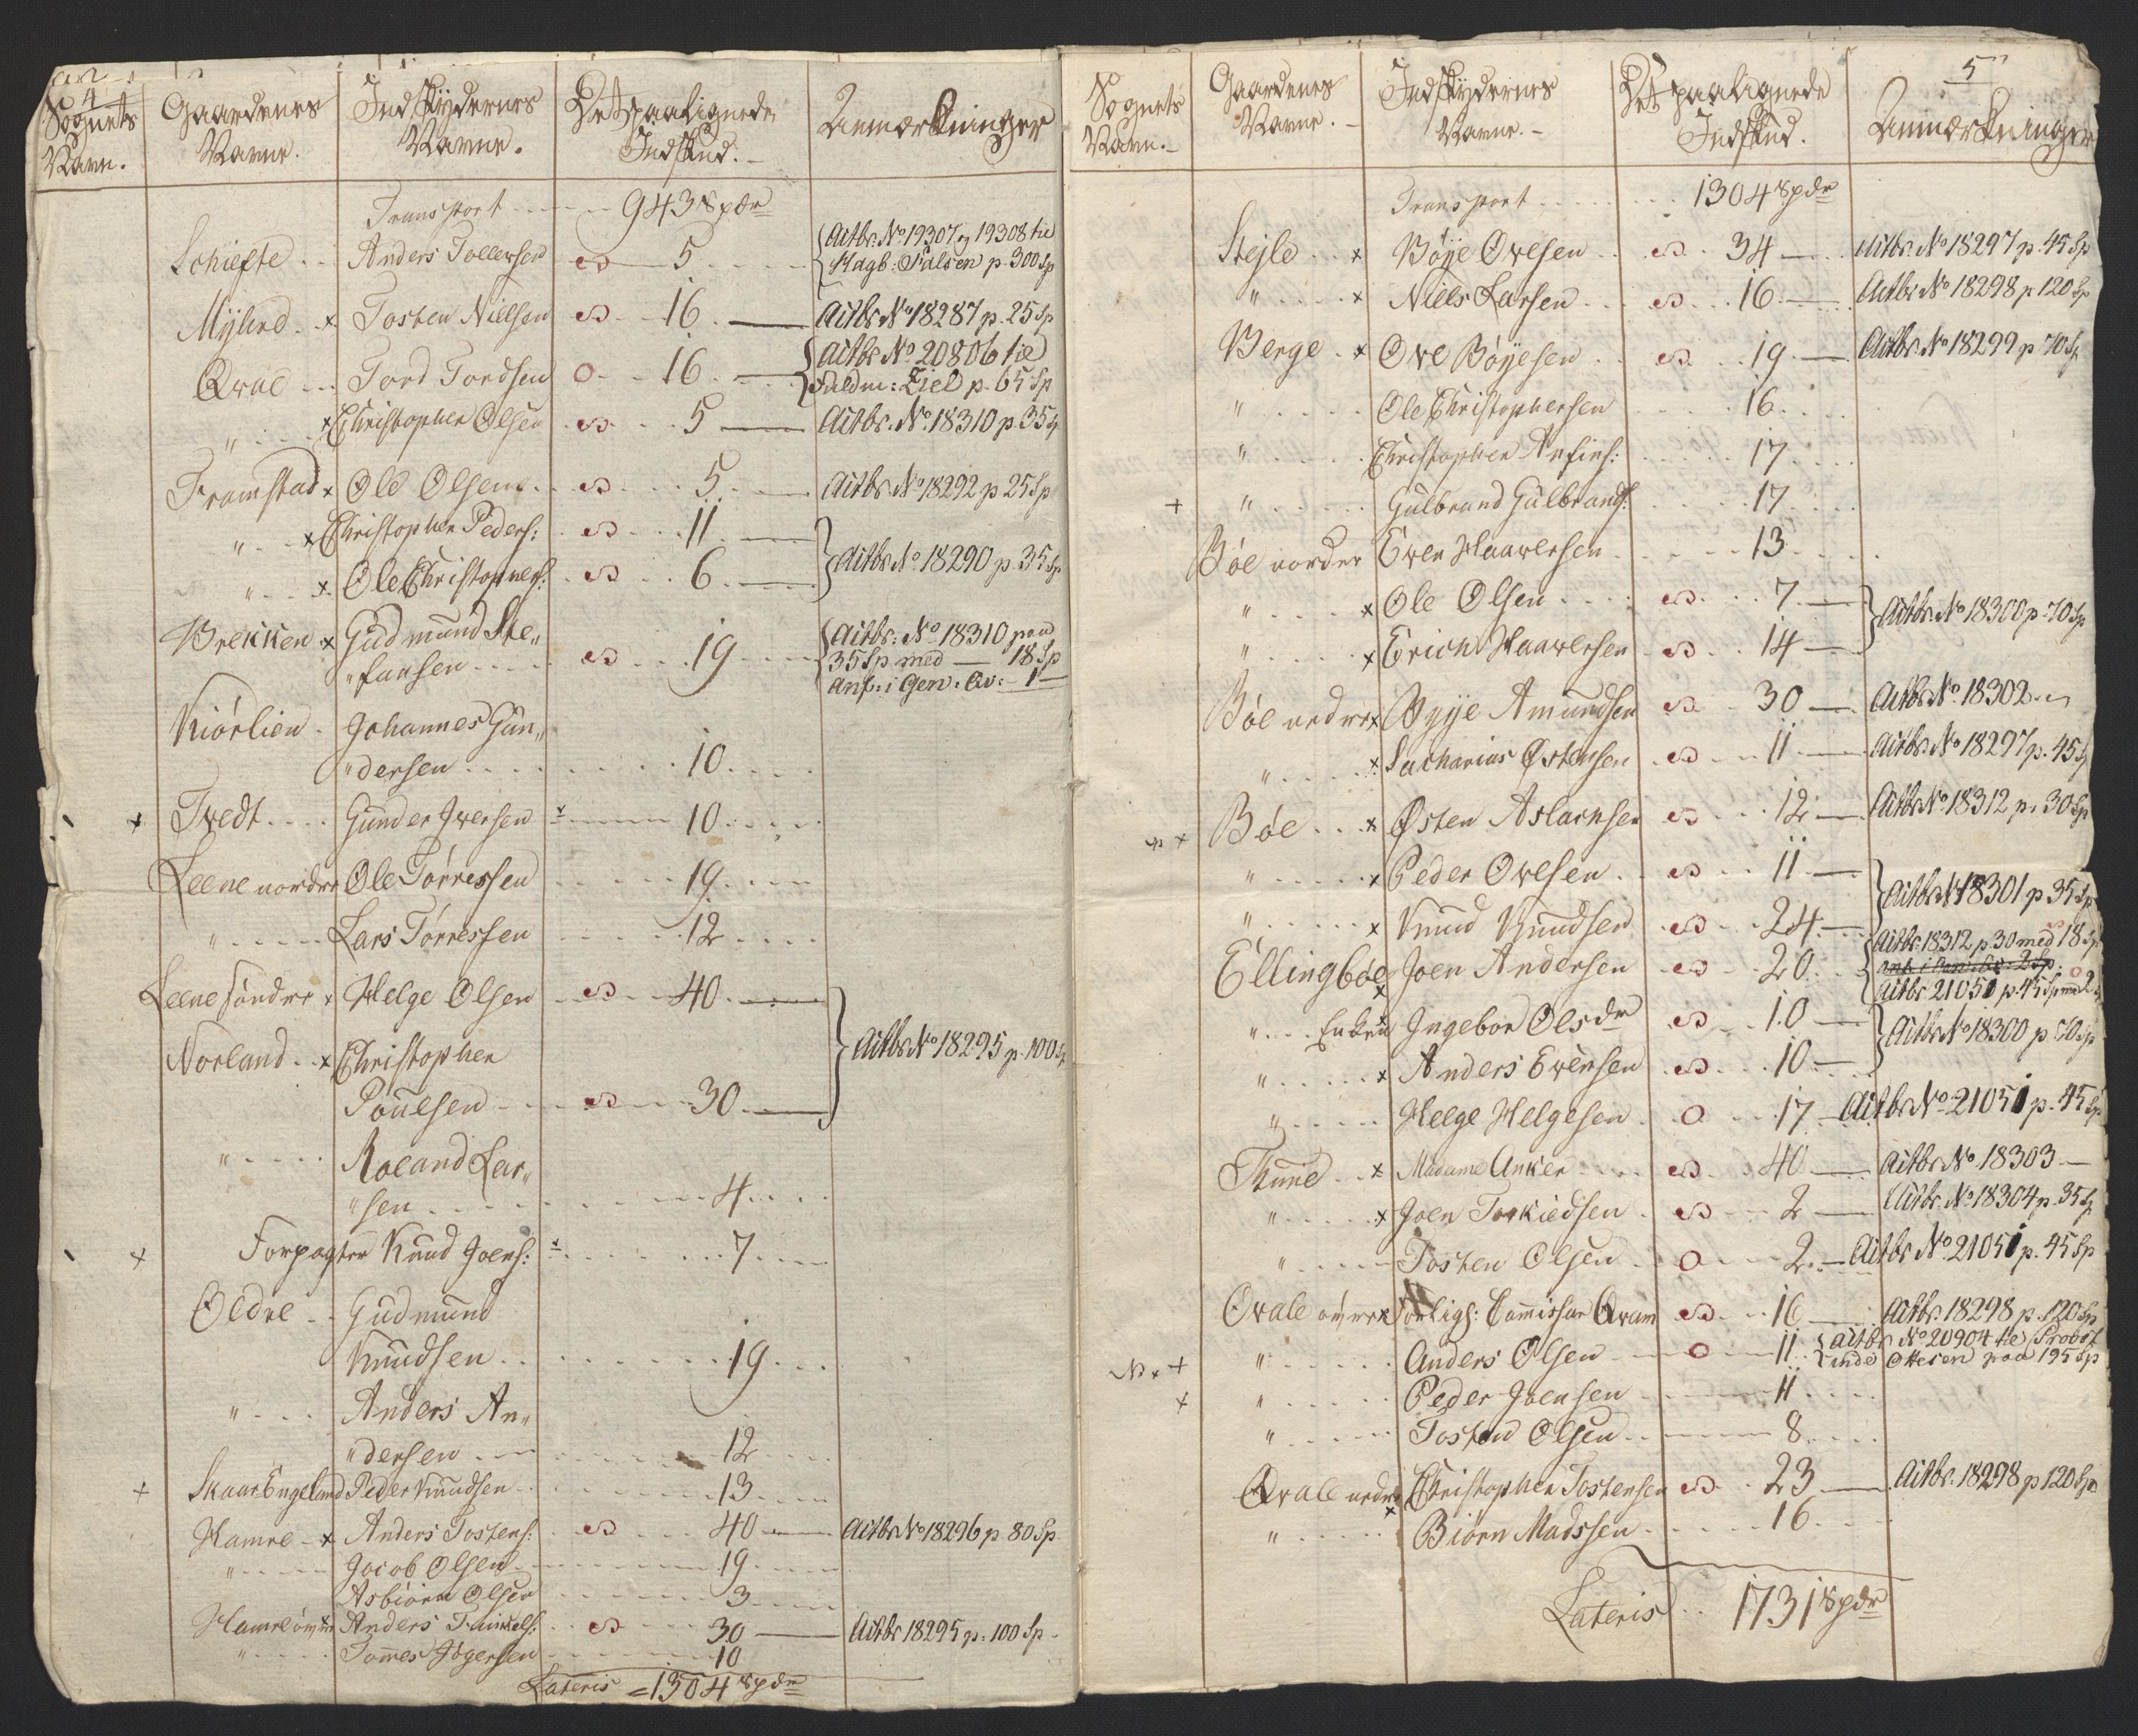 4
Sognets Navn. Gaardenes Navne. Indskydernes Navne. Det paalignede Indskud. Anmærkninger
Transport 943 Spdr
Schiefte Anders Tollewsen 5 Actbr. No 19307 og 19308 til
Hagb: Palsen p. 300 Sp
Myhrd x Tosten Nielsen 16 Actbr No 18287 p. 25 Sp
Qvale Tord Tordsen O 16 Actbr No 20806 til
Fuldm: Ziel p. 65 Sp
" x Christopher Olsen 5 Actbr. No. 18310 p. 35 Sp
Framstad x Ole Olsen 5 Actbr No 18292 p 25 Sp
" x Christopher Peders: 11
" x Ole Christophers: 6 Actbr No 18290 p. 35 Sp
Brekken x Gudmund Ste„ Actbr: No 18310 paa
"fansen 19 35 Sp med — 18 Sp
Anf: i Gen. Qv: 1 —
Kiörlien Johannes Gun„
"dersen 10
x Tvedt Gunder Iversen 10
Leene nordre Ole Törressen 19
" Lars Törressen 12
Leene söndre x Helge Olsen 40
Norland x Christopher Actbr No 18295 p. 100 Sp
Pouelsen 30
" Roeland Lar„
"sen 4
x Forpagter Knud Joens: 7
Oldre Gudmund
Knudsen 19
" Anders An„
"dersen 12
+ Skaar Engeland Peder Knudsen 13
Hamre x Anders Tostens: 40 Actbr No 18296 p. 80 Sp
" Jacob Olsen 19
Asbiörn Olsen 3
Hamre övre x Anders 30 Actbr 18295 p. 100 Sp
" Tomes 10
Lateris = 1304 Spdr
5
Sognets Navn. Gaardenes Navne. Indskydernes Navne. Det paalignede Indskud. Anmærkninger
Transport 1304 Spdr
Stejle x Böye Ovesen 34 Actbr. No 18297 p. 45 Sp
" x Niels Larsen 16 Actbr No 18298 p 120 Sp
Berge x Ove Böyesen 19 Actbr. No 18299 p 70 Sp
" Ole Christophersen 16
" Christopher Anfins: 17
+ " Gulbrand Gulbrands: 17
Böe nordre Even Haaversen 13
" x Ole Olsen 7 Actbr. No 18300 p. 70 Sp
" x Erich Haaversen 14
Böe nedre x Bøye Amundsen 30 Actbr No. 18302
" x Sacharias Østensen 11 Actbr. No 18297 p. 45 Sp
x Böe x Østen Aslachsen 12 Actbr No 18312 p. 30 Sp
" x Peder Ovesen 11
" x Knud Knudsen 24 Actbr No 18301 p 35 Sp
Ellingböe x Joen Andersen 20 Actbr. 18312 p. 30 med 18 Sp
anf. i Gen: Qv: 2 Sp.
Actbr 21051 p. 45 Sp med 2
" Enken x Ingebor Olsdr 10 Actbr No 18300 p 70 Sp
" x Anders Evensen 10
" Helge Helgesen O 17 Actbr No 21051 p. 45 Sp
Thune x Madame Anker 40 Actbr No 18303 —
" x Joen Torkiedsen 2 Actbr. No 18304 p. 35 Sp
" Tosten Olsen O 2 Actbr No 21051 p. 45 Sp
Qvale övre x Forligs: Comissær Qvam 16 Actbr. 18298 p. 120 Sp
x + " Anders Olsen O 11 Actbr No 20904 til Probst
Ottesen paa 195 Sp
x " Peder Joensen 11
" Tosten Olsen 8
Qvale nedre x Christopher Tostensen 23 Actbr. 18298 p 120 Sp
" Biörn Madssen 16
Lateris 1731 Spdr